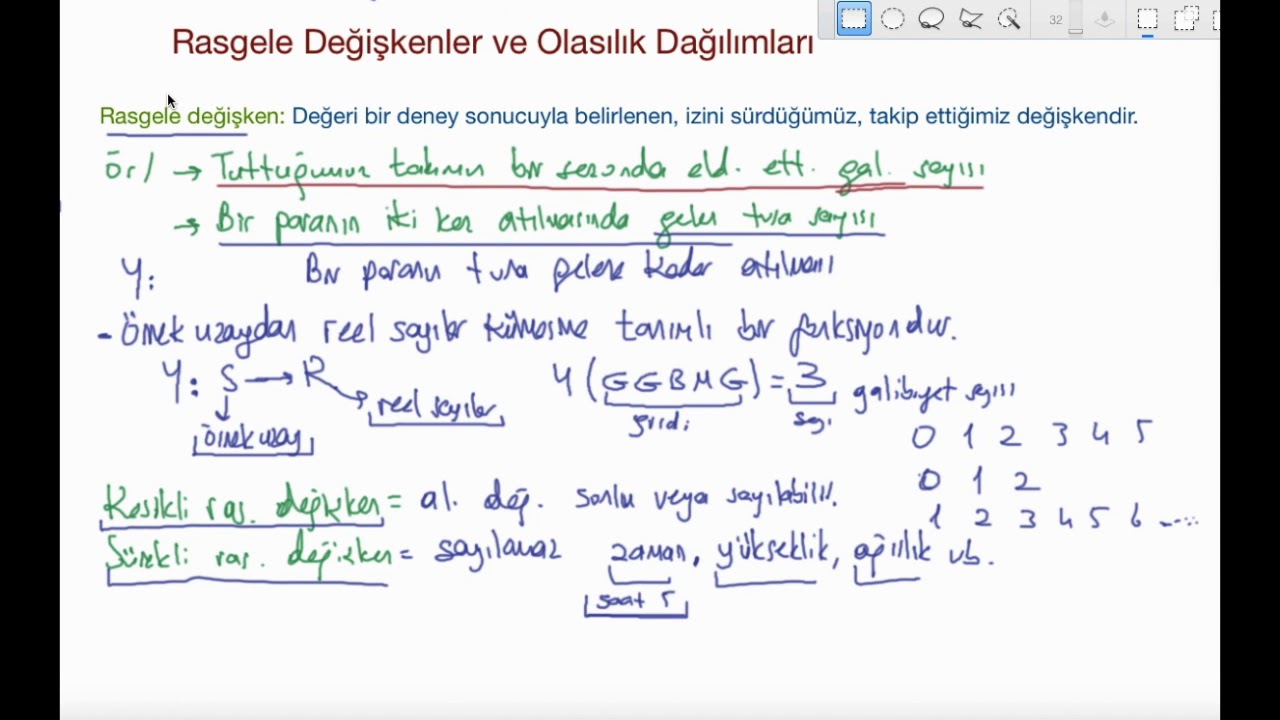 32
Rasgele Değişkenler ve Olasılık Dağılımları
Rasgele değişken: Değeri bir deney sonucuyla belirlenen, izini sürdüğümüz, takip ettiğimiz değişkendir.
ör/ → Tuttuğumuz takımın bir sezonda eld. ett. gal. sayısı
→ Bir paranın iki kez atılmasında gelen tura sayısı
Y: Bir paranın tura gelene kadar atılması
- Örnek uzaydan reel sayılar kümesine tanımlı bir fonksiyondur.
Y: S → R Y(GGBMG) = 3 galibiyet sayısı
reel sayılar
örnek uzay
sayı
0 1 2 3 4 5
0 1 2
Kesikli ras. değişken = al. değ. sonlu veya sayılabilir.
1 2 3 4 5 6 .....
Sürekli ras. değişken = sayılamaz zaman, yükseklik, ağırlık vb.
saat 5